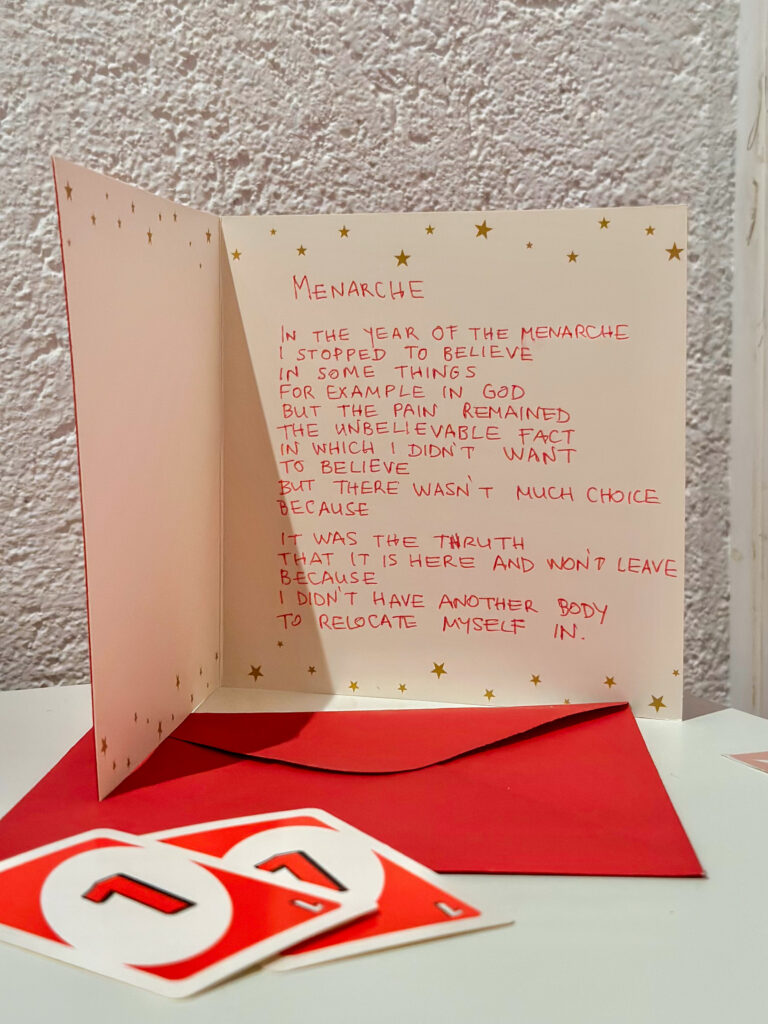 MENARCHE
IN THE YEAR OF THE MENARCHE
I STOPPED TO BELIEVE
IN SOME THINGS
FOR EXAMPLE IN GOD
BUT THE PAIN REMAINED
THE UNBELIEVABLE FACT
IN WHICH I DIDN'T WANT
TO BELIEVE
BUT THERE WASN'T MUCH CHOICE
BECAUSE
IT WAS THE THRUTH
THAT IT IS HERE AND WON'T LEAVE
BECAUSE
I DIDN'T HAVE ANOTHER BODY
TO RELOCATE MYSELF IN.
1
1
1
1